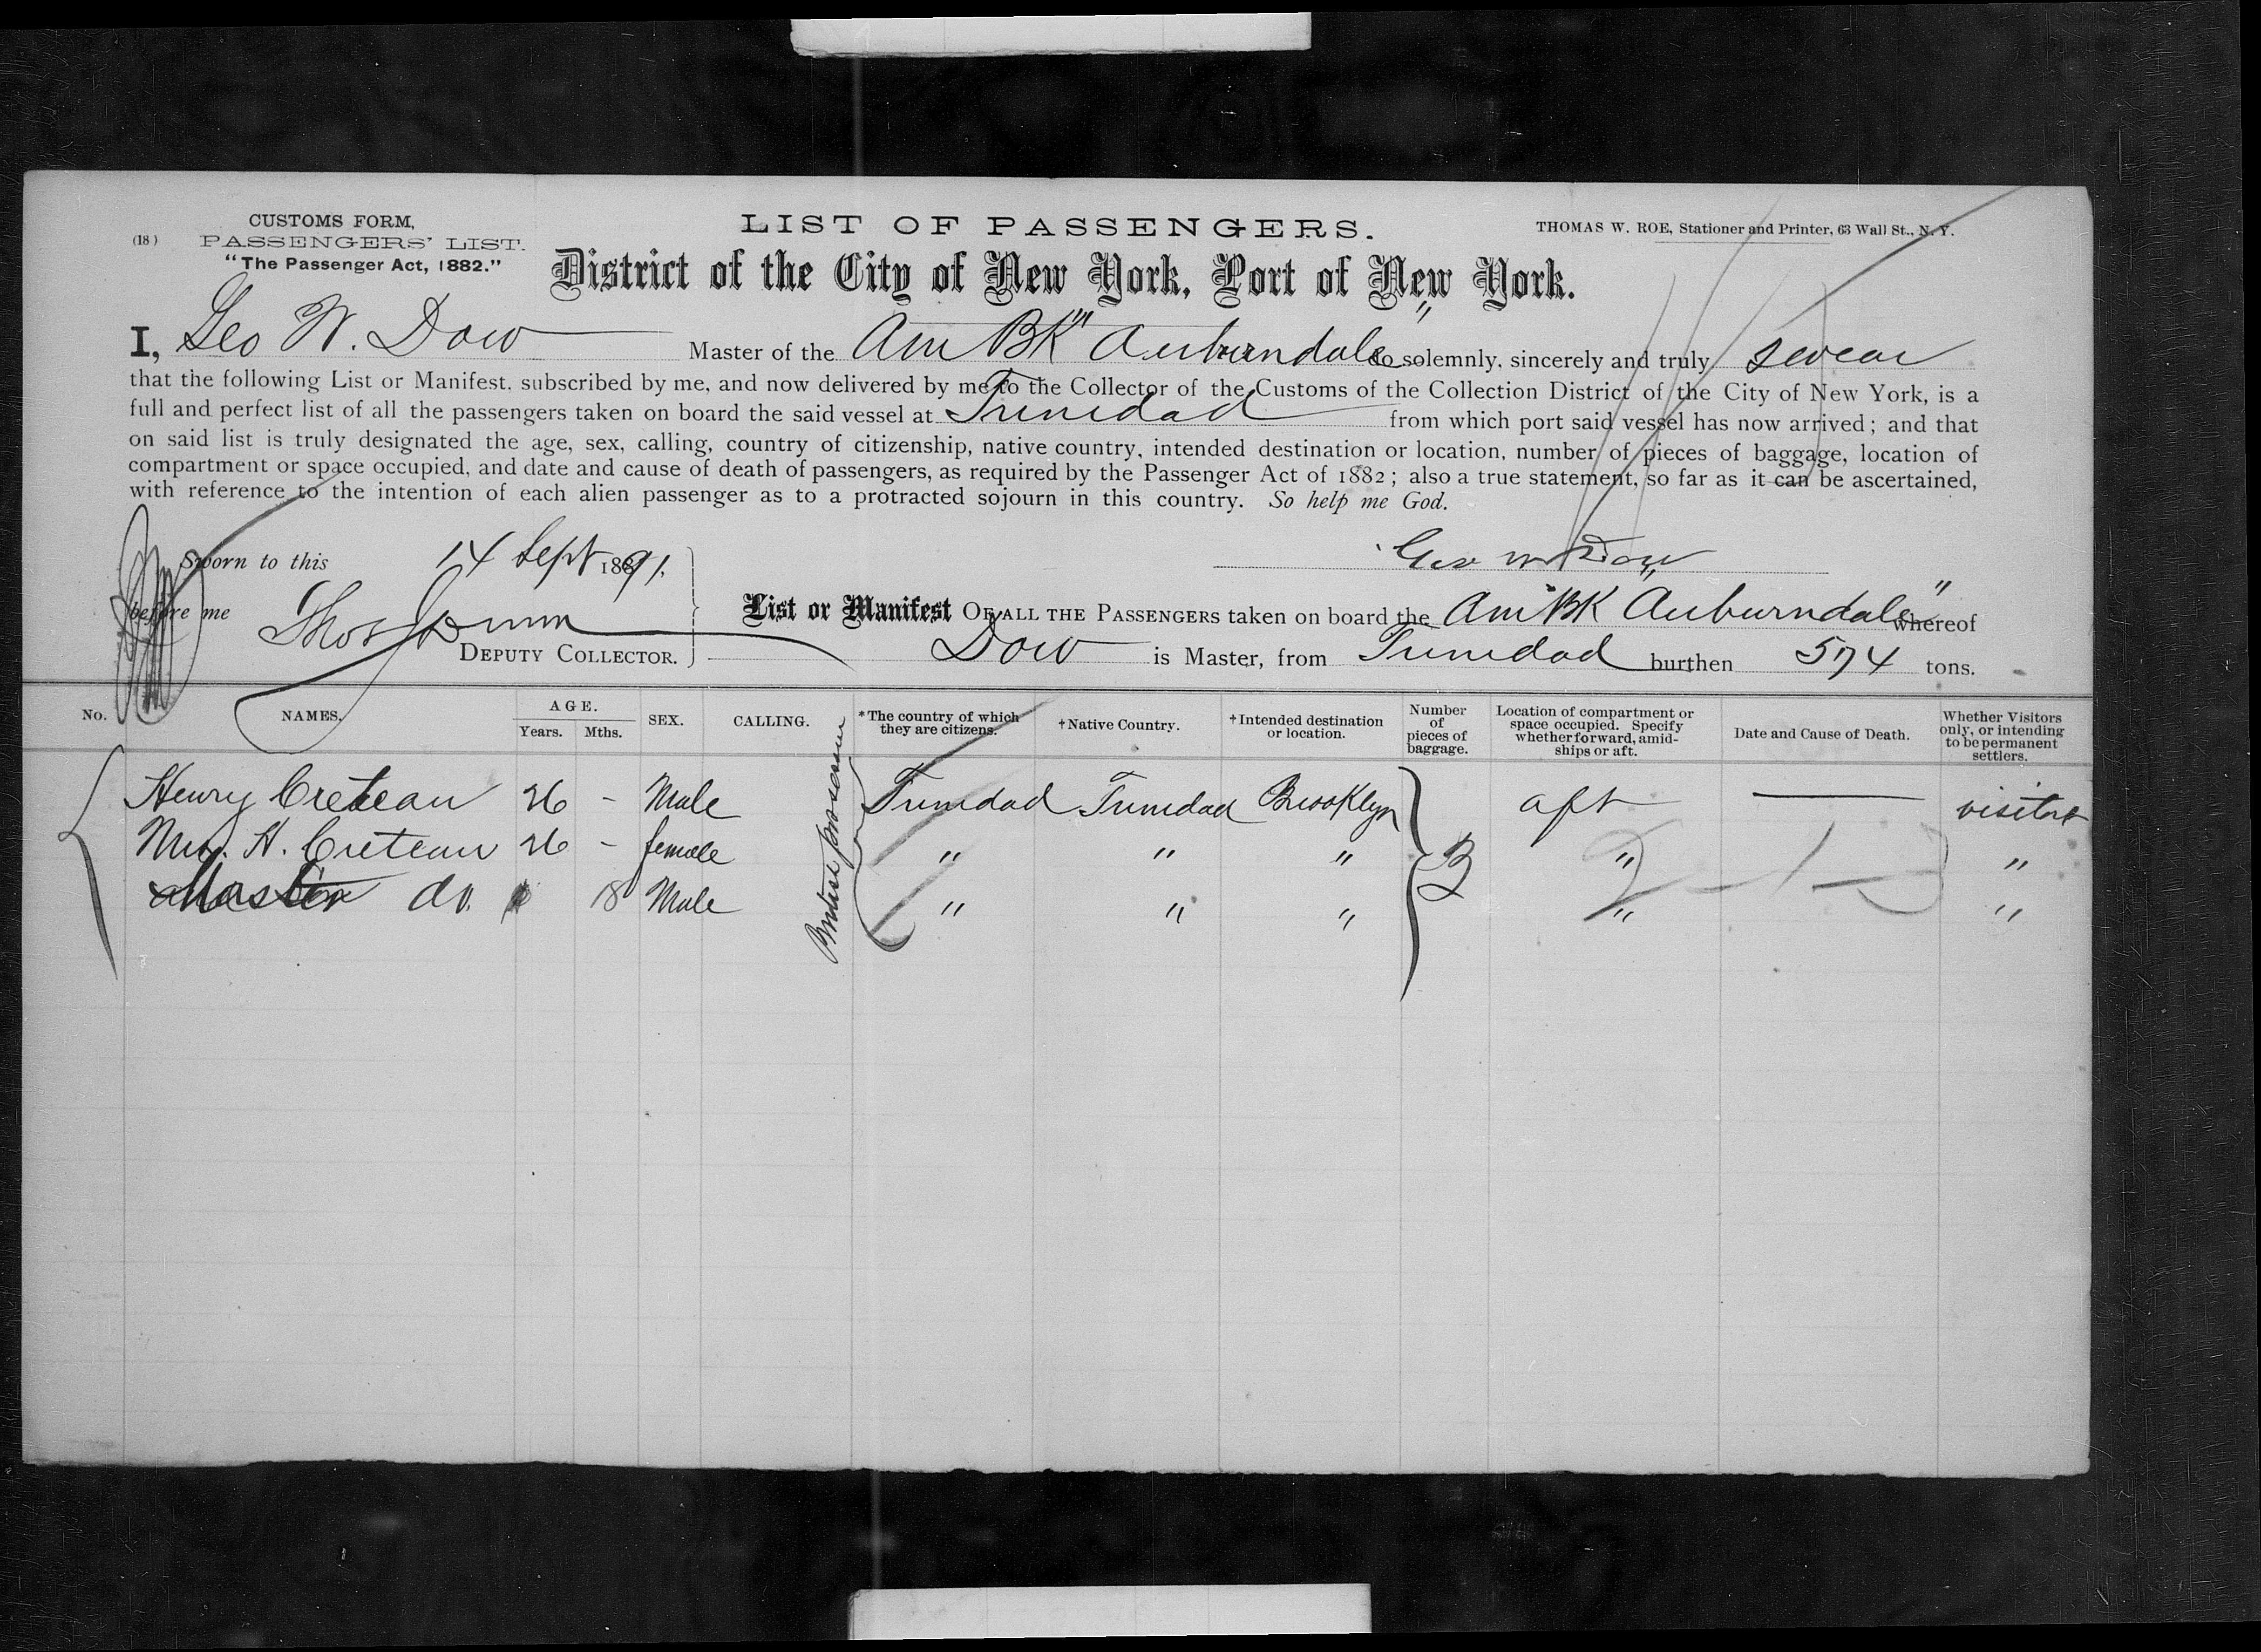 (18)
CUSTOMS FORM,
PASSENGERS' LIST.
"The Passenger Act, 1882."
LIST OF PASSENGERS.
THOMAS W. ROE, Stationer and Printer, 63 Wall St., N. Y.
District of the City of New York, Port of New York.
I, Geo W. Dow Master of the Am BK "Auburndale" do solemnly, sincerely and truly swear
that the following List or Manifest. subscribed by me, and now delivered by me to the Collector of the Customs of the Collection District of the City of New York, is a
full and perfect list of all the passengers taken on board the said vessel at Trinidad from which port said vessel has now arrived; and that
on said list is truly designated the age, sex, calling, country of citizenship, native country, intended destination or location, number of pieces of baggage, location of
compartment or space occupied, and date and cause of death of passengers, as required by the Passenger Act of 1882; also a true statement, so far as it can be ascertained,
with reference to the intention of each alien passenger as to a protracted sojourn in this country. So help me God.
Sworn to this 14 Sept 1891.
Geo W Dow
before me Thos
DEPUTY COLLECTOR.
List or Manifest OF ALL THE PASSENGERS taken on board the Am BK "Auburndale" whereof
Dow is Master, from Trinidad burthen 574 tons.
No. NAMES. AGE. Years. Mths. SEX. CALLING. *The country of which they are citizens. †Native Country. †Intended destination or location. Number of pieces of baggage. Location of compartment or space occupied. Specify whether forward, amidships or aft. Date and Cause of Death. Whether Visitors only, or intending to be permanent settlers.
Henry Creteau 26 - Male Trinidad Trinidad Brooklyn aft visitors
Mrs. H. Creteau 26 - female " " " 3 " "
Master do. 18 Male " " " " "
British possession